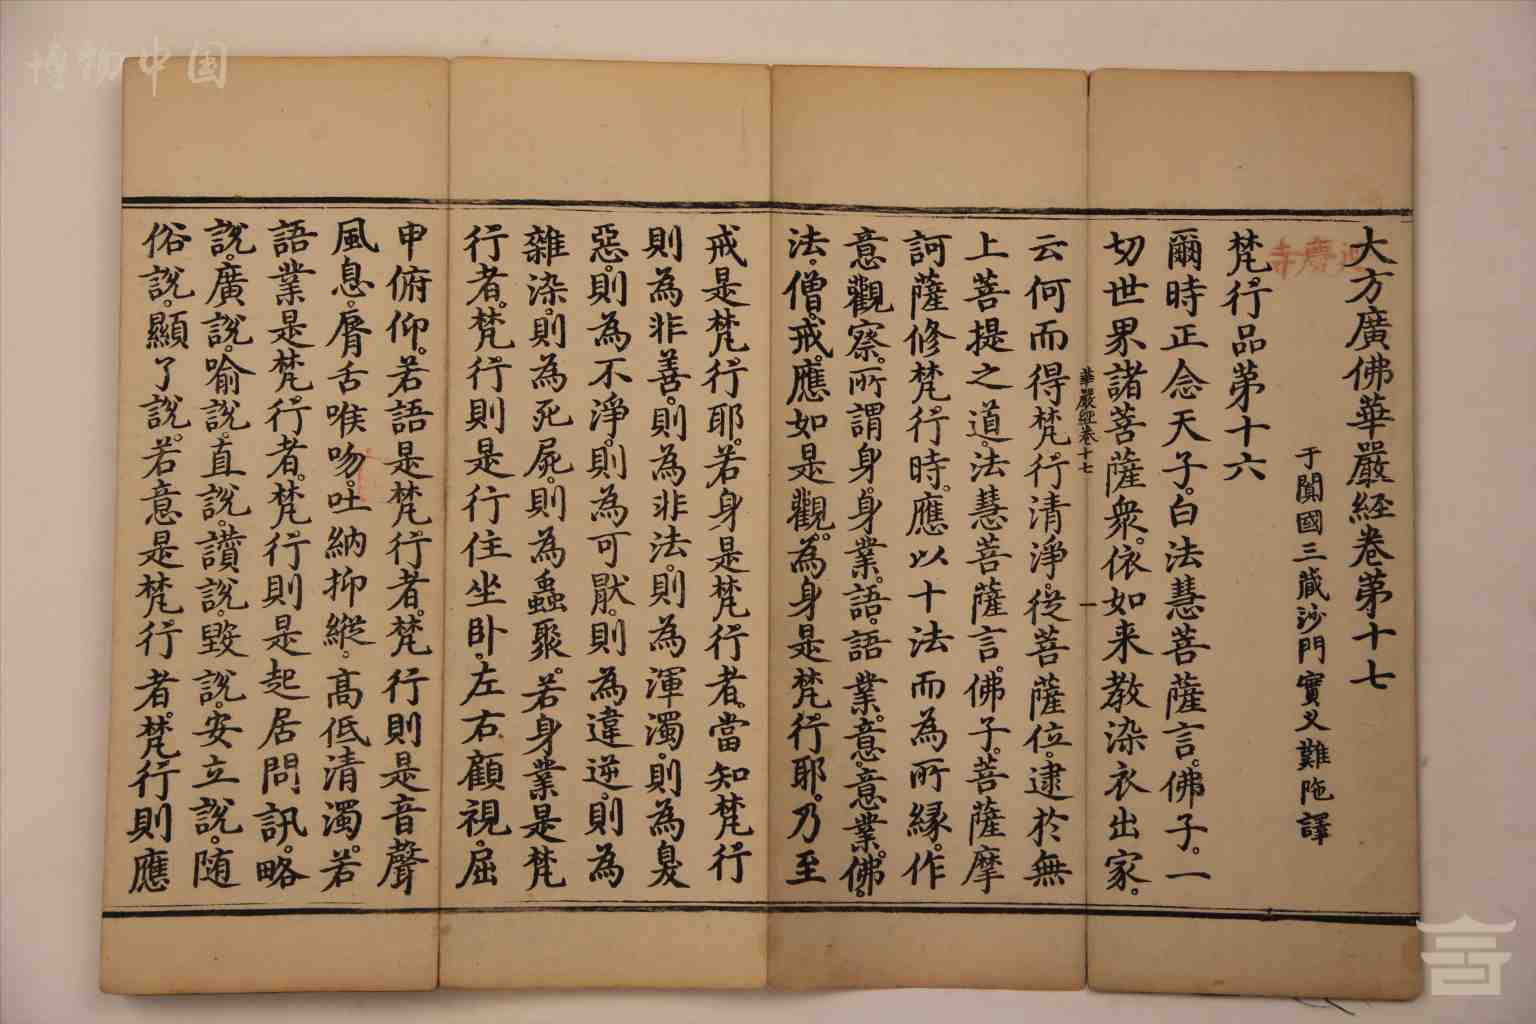 大方廣佛華嚴經卷第十七
于闐國三藏沙門實叉難陁譯
梵行品第十六
爾時正念天子。白法慧菩薩言。佛子。一
切世界諸菩薩衆。依如来教染衣出家。
華嚴經卷十七 一
云何而得梵行清淨。從菩薩位。逮於無
上菩提之道。法慧菩薩言。佛子。菩薩摩
訶薩修梵行時。應以十法而為所緣。作
意觀察。所謂身。身業。語。語業。意。意業。佛。
法。僧。戒。應如是觀。為身是梵行耶。乃至
戒是梵行耶。若身是梵行者。當知梵行
則為非善。則為非法。則為渾濁。則為臭
惡。則為不淨。則為可厭。則為違逆。則為
雜染。則為死屍。則為蟲聚。若身業是梵
行者。梵行則是行住坐臥。左右顧視。屈
申俯仰。若語是梵行者。梵行則是音聲
風息。脣舌喉吻。吐納抑縱。高低清濁。若
語業是梵行者。梵行則是起居問訊。略
說。廣說。喻說。直說。讚說。毀說。安立說。随
俗說。顯了說。若意是梵行者。梵行則應
慶寺
博物中国